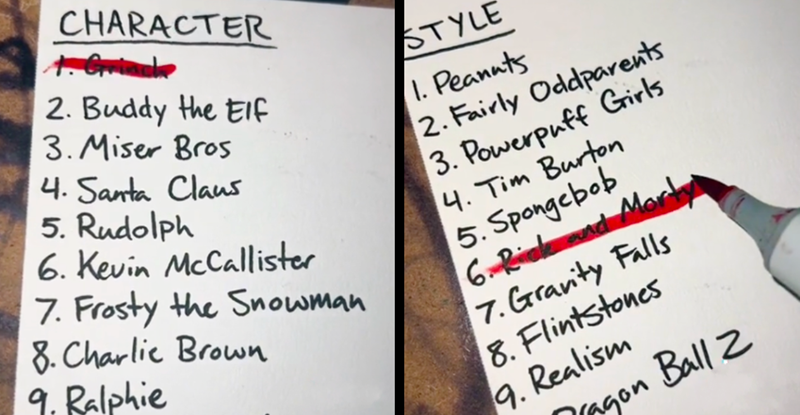 CHARACTER
1. Grinch
2. Buddy the Elf
3. Miser Bros
4. Santa Claus
5. Rudolph
6. Kevin McCallister
7. Frosty the Snowman
8. Charlie Brown
9. Ralphie
STYLE
1. Peanuts
2. Fairly Oddparents
3. Powerpuff Girls
4. Tim Burton
5. Spongebob
6. Rick and Morty
7. Gravity Falls
8. Flintstones
9. Realism
Dragon Ball Z